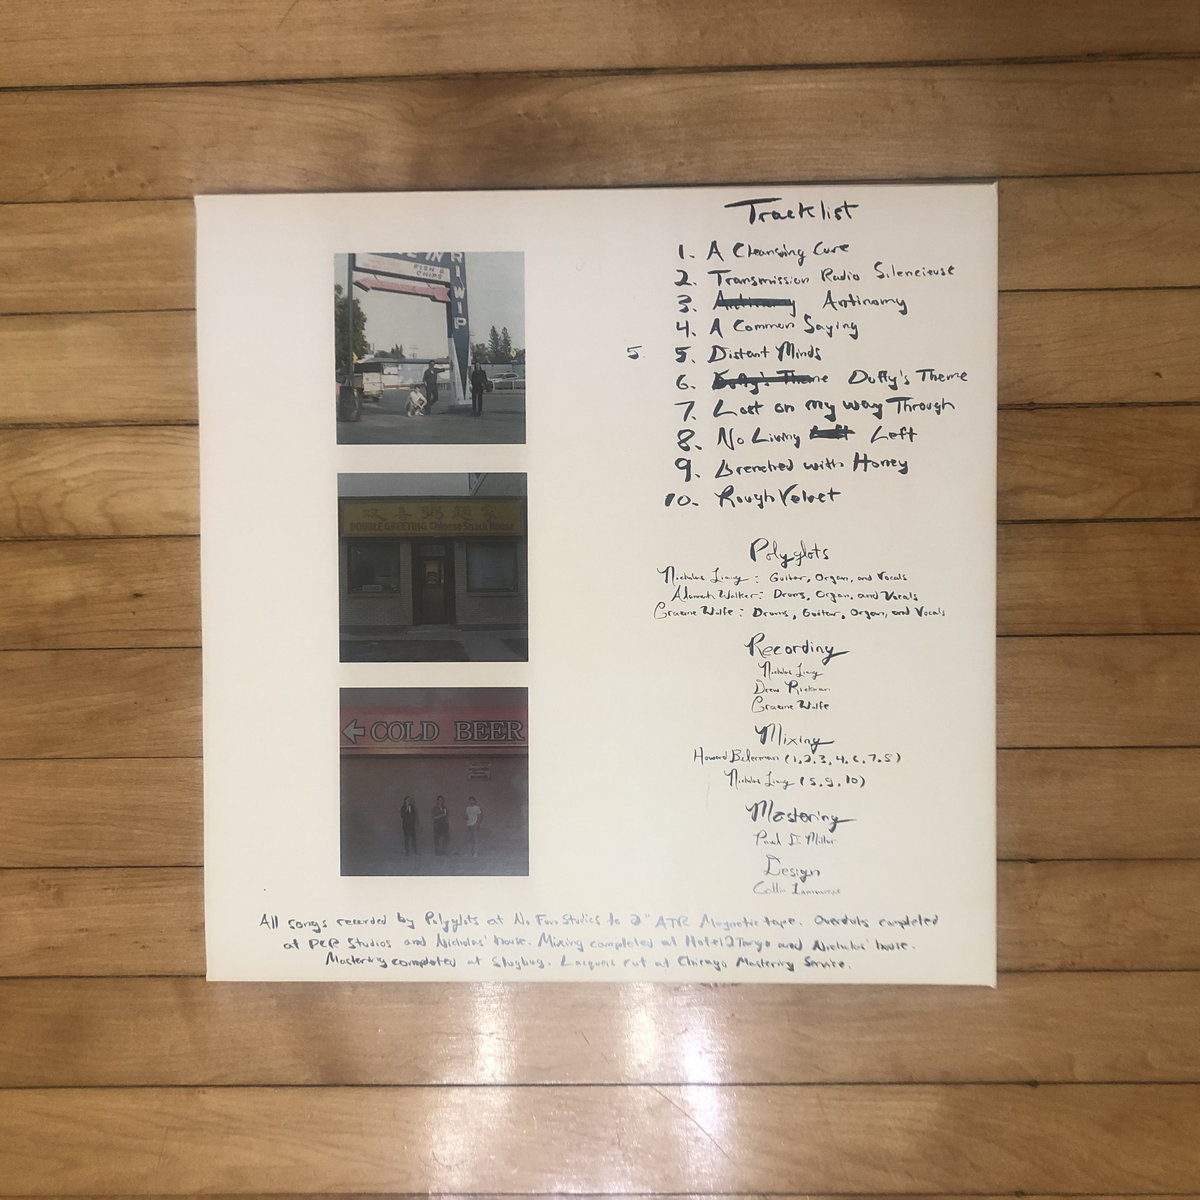 FISH &
CHIPS
RIWIP
双喜粥麵家
DOUBLE GREETING Chinese Snack House
COLD BEER
Tracklist
1. A Cleansing Cure
2. Transmission Radio Silencieuse
3. Antinomy Antinomy
4. A Common Saying
5. 5. Distant Minds
6. Duffy's Theme Duffy's Theme
7. Lost on my way Through
8. No Living Left
9. Drenched with Honey
10. Rough Velvet
Polyglots
Nicholas Liang: Guitar, Organ, and Vocals
Adannah Walker: Drums, Organ, and Vocals
Graeme Wolfe: Drums, Guitar, Organ, and Vocals
Recording
Nicholas Liang
Drew Rickman
Graeme Wolfe
Mixing
Howard Bilerman (1,2,3,4,6,7,8)
Nicholas Liang (5,9,10)
Mastering
Paul D. Millar
Design
Collin
All songs recorded by Polyglots at No Fun Studios to 2" ATR Magnetic tape. Overdubs completed
at PCR Studios and Nicholas' house. Mixing completed at Hotel2Tango and Nicholas' house.
Mastering completed at Slugbug. Lacquers cut at Chicago Mastering Service.